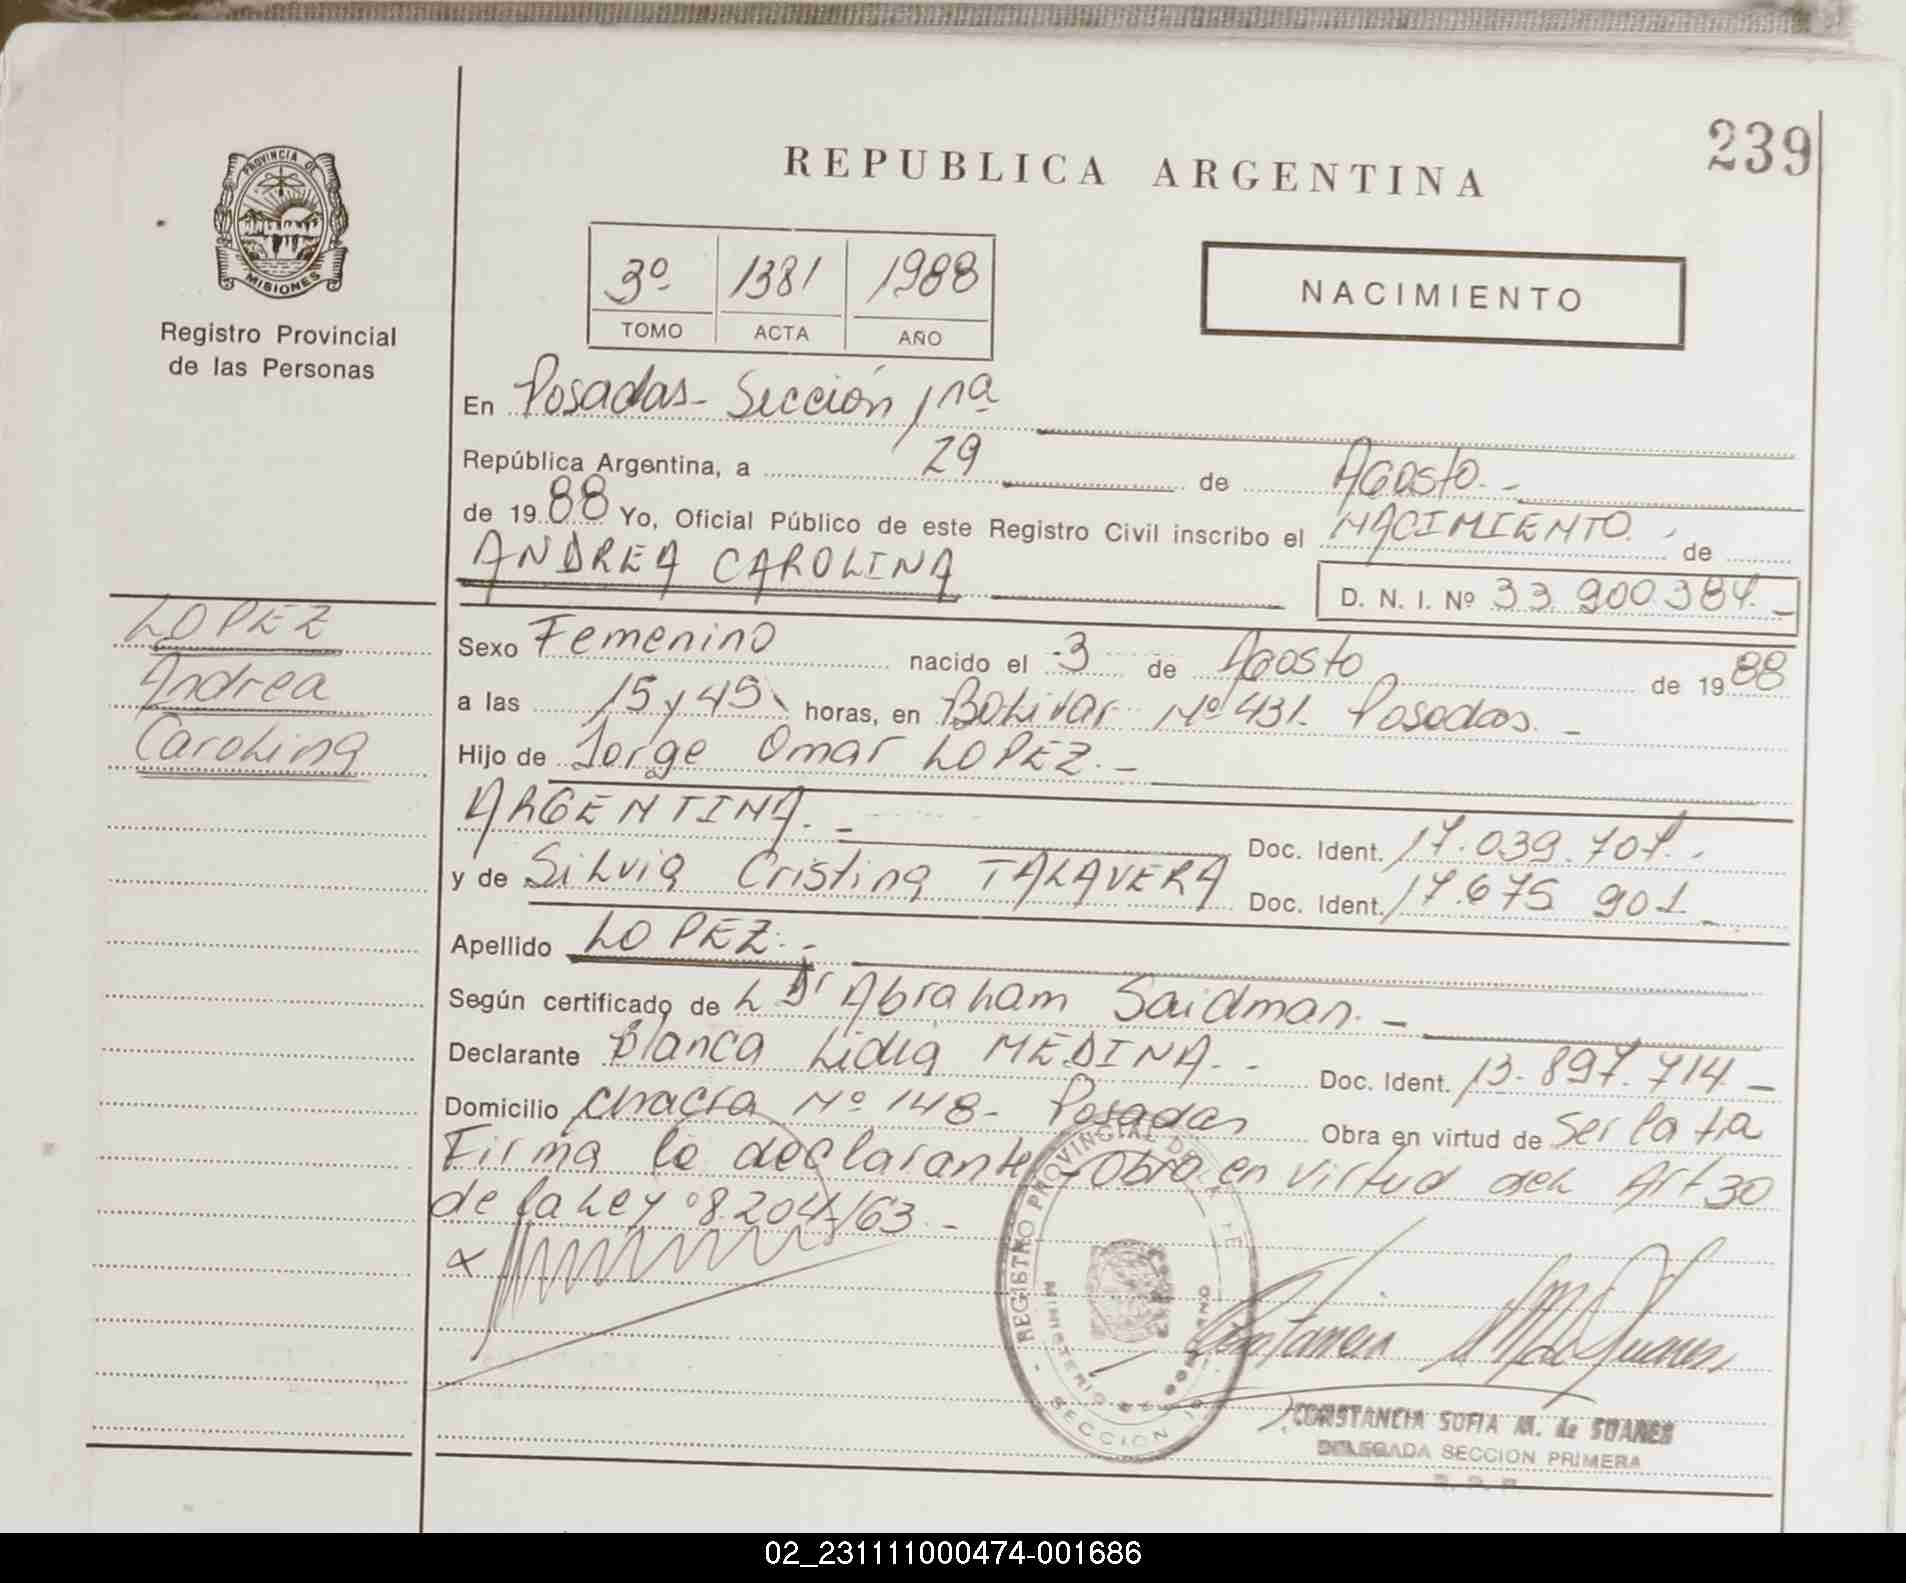 239
REPUBLICA ARGENTINA
PROVINCIA DE
MISIONES
Registro Provincial
de las Personas
3º 1381 1988
TOMO ACTA AÑO
NACIMIENTO
En Posadas - Sección 1ra
República Argentina, a 29 de Agosto. -
de 1988 Yo, Oficial Público de este Registro Civil inscribo el NACIMIENTO. de
ANDREA CAROLINA
D. N. I. Nº 33.900.384. -
LOPEZ
Andrea
Carolina
Sexo Femenino nacido el 3 de Agosto de 1988
a las 15 y 45 horas, en Bolivar Nº 431. Posadas. -
Hijo de Jorge Omar LOPEZ. -
ARGENTINA. - Doc. Ident. 17.039.707. -
y de Silvia Cristina TALAVERA Doc. Ident. 17.675 901 -
Apellido LOPEZ. -
Según certificado de L Dr Abraham Saidman. -
Declarante Blanca Lidia MEDINA. - Doc. Ident. 13.897.714 -
Domicilio Chacra Nº 148 - Posadas Obra en virtud de Ser la tia
Firma la declarante - Obra en virtud del Art 30
de la Ley º8.204/63. -
REGISTRO PROVINCIAL DE
MINISTERIO
SECCION 1ª
Constancia M de Suares
CONSTANCIA SOFIA M. de SUARES
DELEGADA SECCION PRIMERA
R. P. P.
02_231111000474-001686